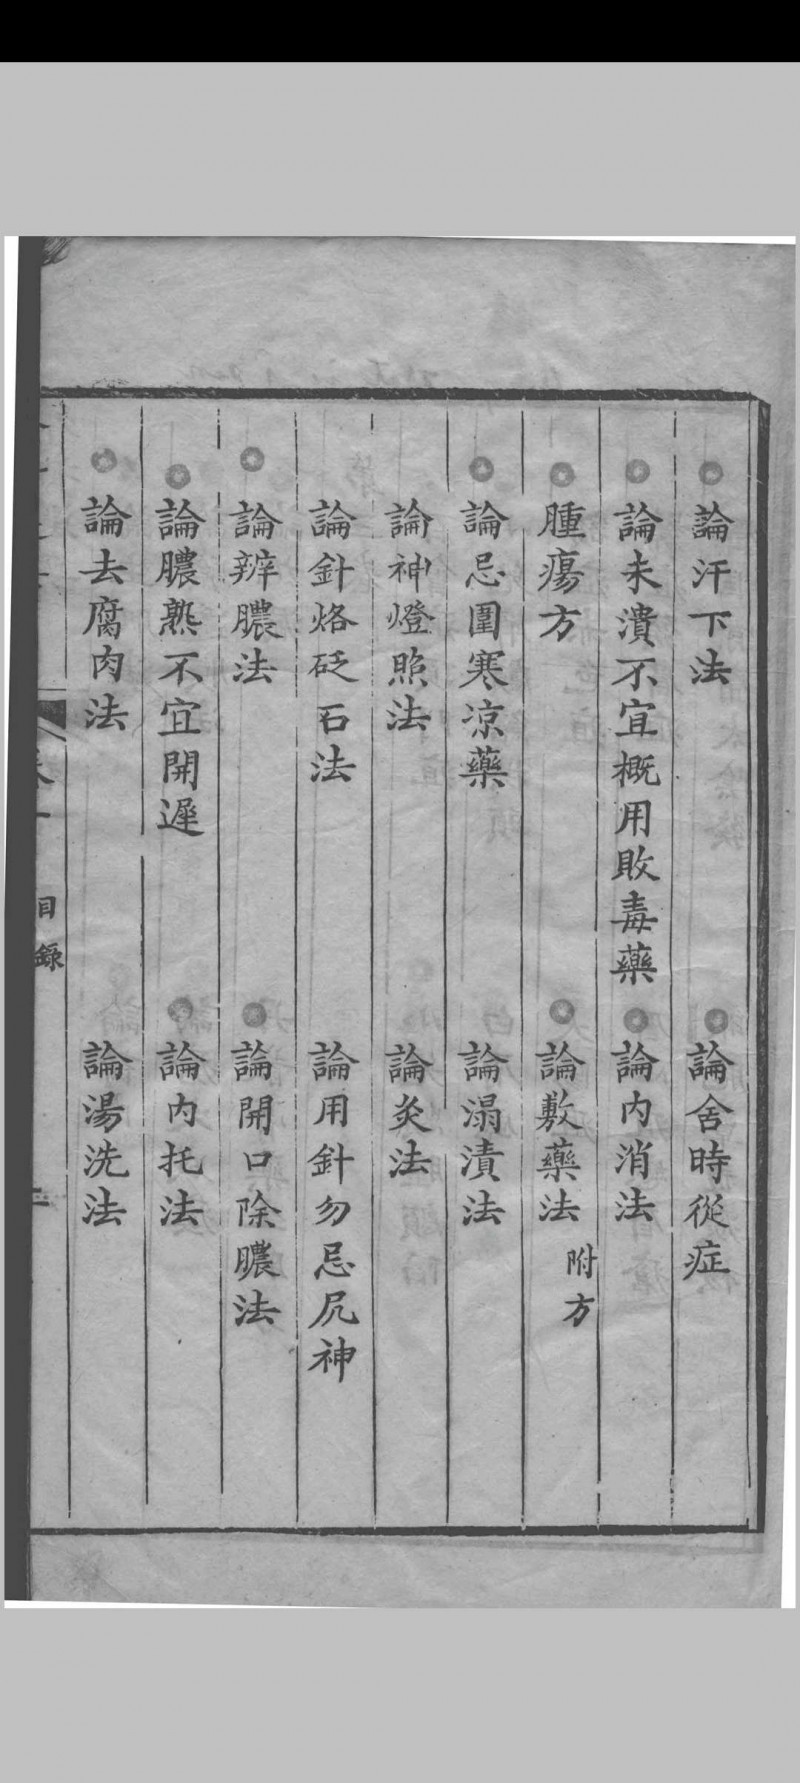 論汗下法
論舍時從症
論未潰不宜概用敗毒藥
論内消法
腫瘍方
論敷藥法 附方
論忌圍寒凉藥
論溻漬法
論神燈照法
論灸法
論針烙砭石法
論用針勿忌尻神
論辨膿法
論開口除膿法
論膿熟不宜開遲
論内托法
論去腐肉法
論湯洗法
目錄